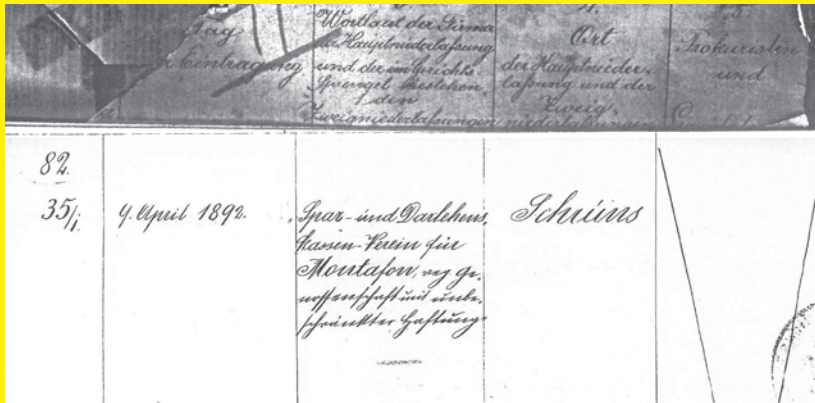 Tag
Eintragung
Wortlaut der Firma
der Hauptniederlassung
und der im Gerichts
Sprengel bestehen
den
Zweigniederlassungen
4.
Ort
der Hauptnieder-
lassung und der
Zweig
niederlassungen
5.
Prokuristen
und
82.
35/1.
9. April 1892.
Spar- und Darlehens,
Kassen-Verein für
Montafon, reg. Ge-
nossenschaft mit unbe-
schränkter Haftung.
Schruns